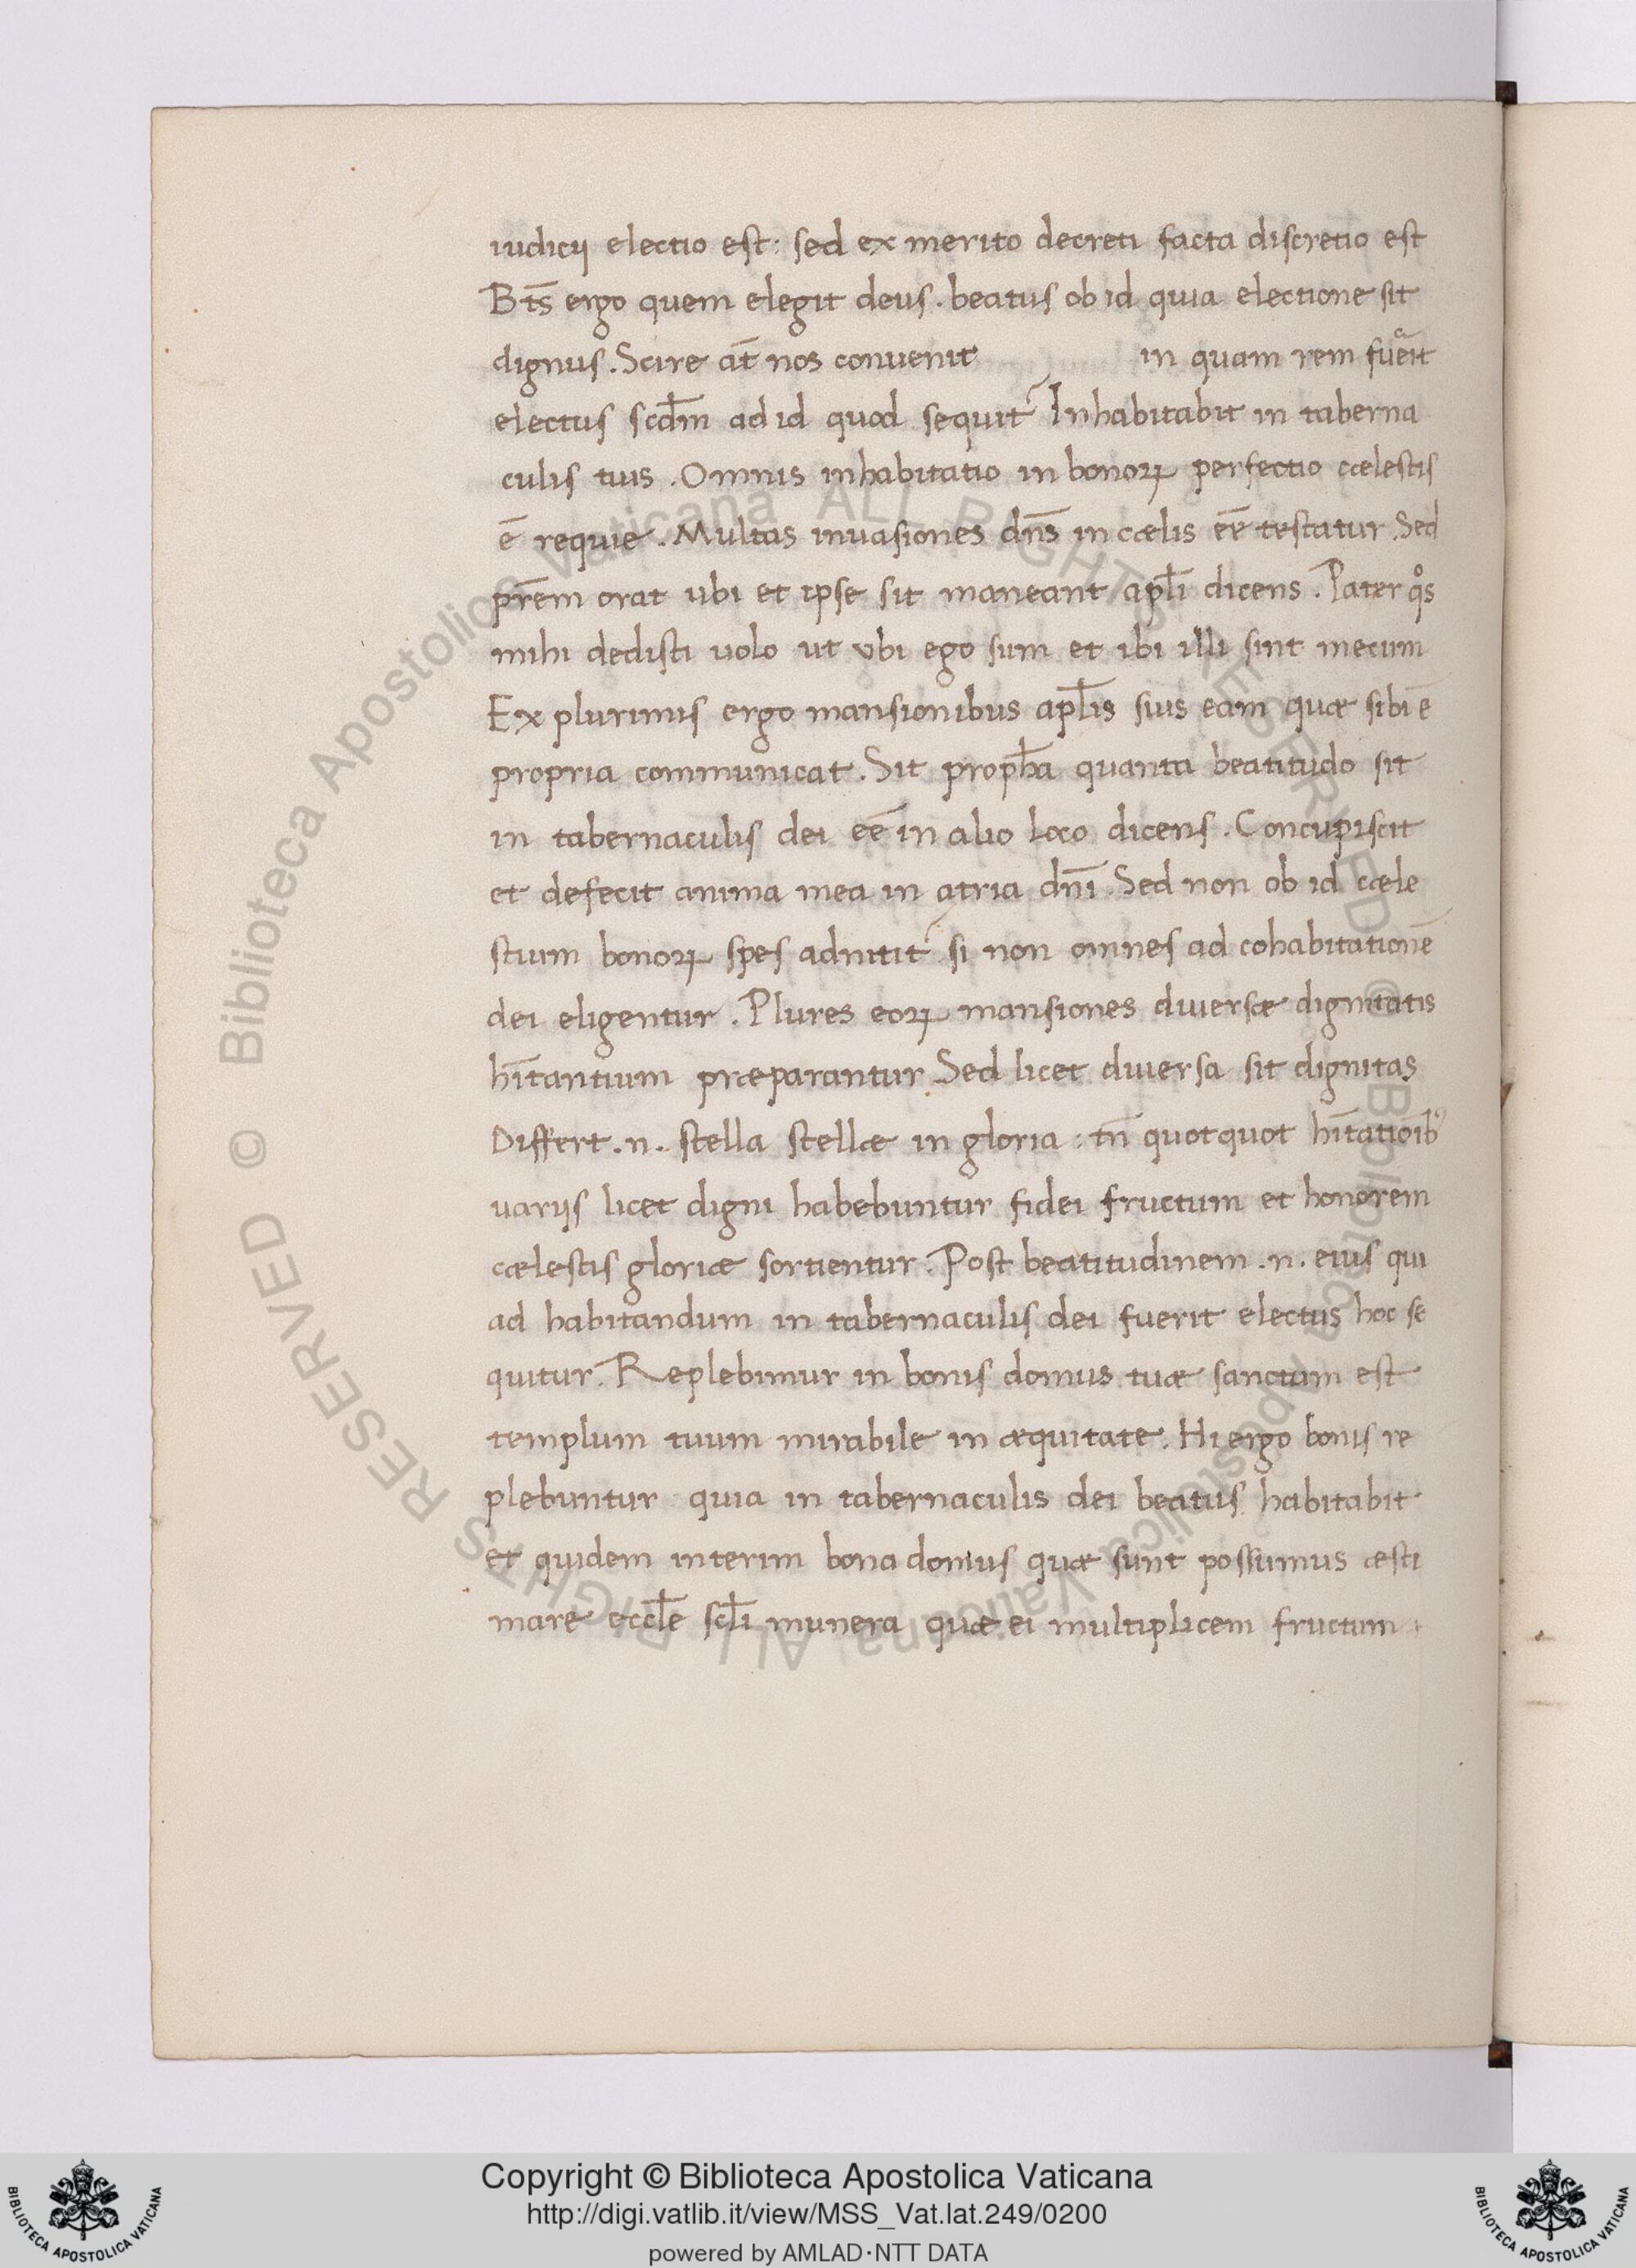 iudicij electio est: sed ex merito decreti facta discretio est
Bt̄s ergo quem elegit deus. beatus ob id quia electione sit
dignus. Scire at̄ nos conuenit in quam rem fuerit
electus scd̄m ad id quod sequit᷑ Inhabitabit in taberna
culis tuis. Omnis inhabitatio in bonoꝝ perfectio cælestis
ē requie. Multas inuasiones dn̄s in cælis eē testatur. Sed
pr̄em orat ubi et ipse sit maneant apl̄i dicens. Pater qͦs
mihi dedisti uolo ut ubi ego sum et ibi illi sint mecum
Ex plurimis ergo mansionibus apl̄is suis eam quæ sibi ē
propria communicat. Sit proph̄a quanta beatitudo sit
in tabernaculis dei eē in alio loco dicens. Concupiscit
et defecit anima mea in atria dn̄i. Sed non ob id cæle
stium bonoꝝ spes adnitit᷑ si non omnes ad cohabitationē
dei eligentur. Plures eoꝝ mansiones diuersæ dignitatis
hītantium præparantur. Sed licet diuersa sit dignitas
Differt .n. stella stellæ in gloria: tn̄ quotquot hītatioībꝰ
uarijs licet digni habebuntur fidei fructum et honorem
cælestis gloriæ sortientur. Post beatitudinem .n. eius qui
ad habitandum in tabernaculis dei fuerit electus hoc se
quitur. Replebimur in bonis domus tuæ sanctum est
templum tuum mirabile in æquitate. Hi ergo bonis re
plebuntur quia in tabernaculis dei beatus habitabit
et quidem interim bona domus quæ sunt possumus æsti
mare eccl̄e scl̄i munera quæ ei multiplicem fructum
© Biblioteca Apostolica Vaticana ALL RIGHTS RESERVED © Biblioteca Apostolica Vaticana ALL RIGHTS RESERVED
Copyright © Biblioteca Apostolica Vaticana
http://digi.vatlib.it/view/MSS_Vat.lat.249/0200
powered by AMLAD·NTT DATA
BIBLIOTECA APOSTOLICA VATICANA
BIBLIOTECA APOSTOLICA VATICANA